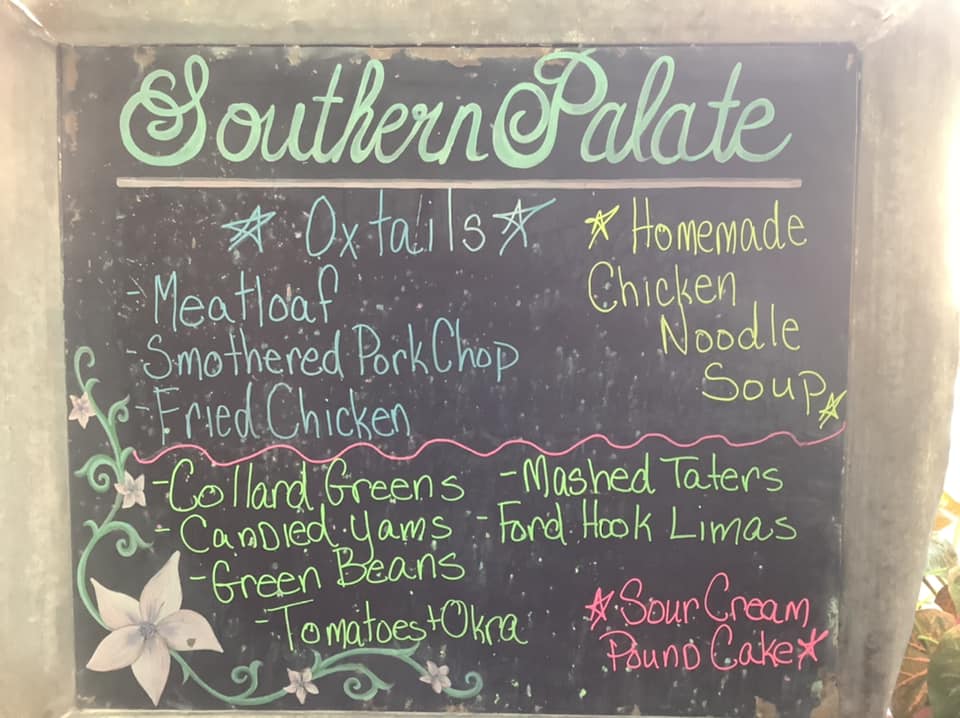 Southern Palate
☆ Oxtails ☆
- Meatloaf
- Smothered Pork Chop
- Fried Chicken
☆ Homemade
Chicken
Noodle
Soup ☆
- Colland Greens
- Candied Yams
- Green Beans
- Tomatoes + Okra
- Mashed Taters
- Ford Hook Limas
☆ Sour Cream
Pound Cake ☆